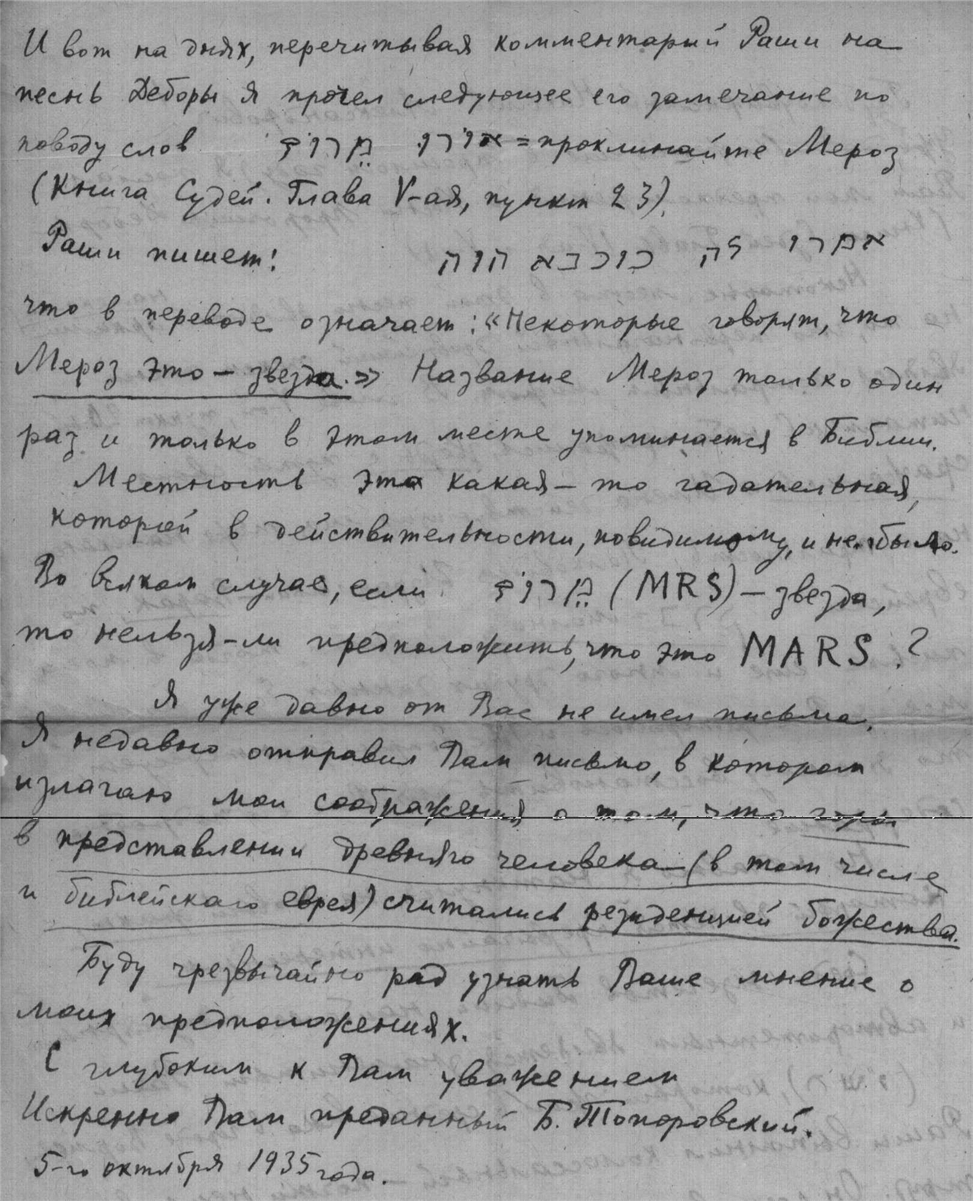 И вот на днях, перечитывая комментарий Раши на
песнь Деборы я прочел следующее его замечание по
поводу слов אורו מרוז = проклинайте Мероз
(Книга Судей. Глава V-ая, пункт 23).
Раши пишет: אמרי לה כוכבא הוה
что в переводе означает: «Некоторые говорят, что
Мероз это – звезда.» Название Мероз только один
раз и только в этом месте упоминается в Библии.
Местность эта какая-то гадательная,
которой в действительности, повидимому, и не было.
Во всяком случае, если מרוז (MRS) – звезда,
то нельзя-ли предположить, что это MARS?
Я уже давно от Вас не имел письма.
Я недавно отправил Вам письмо, в котором
излагаю мои соображения о том, что горы
в представлении древняго человека (в том числе
и библейскаго еврея) считались резиденцией божества.
Буду чрезвычайно рад узнать Ваше мнение о
моих предположениях.
С глубоким к Вам уважением
Искренно Вам преданный Б. Топоровский.
5-го октября 1935 года.